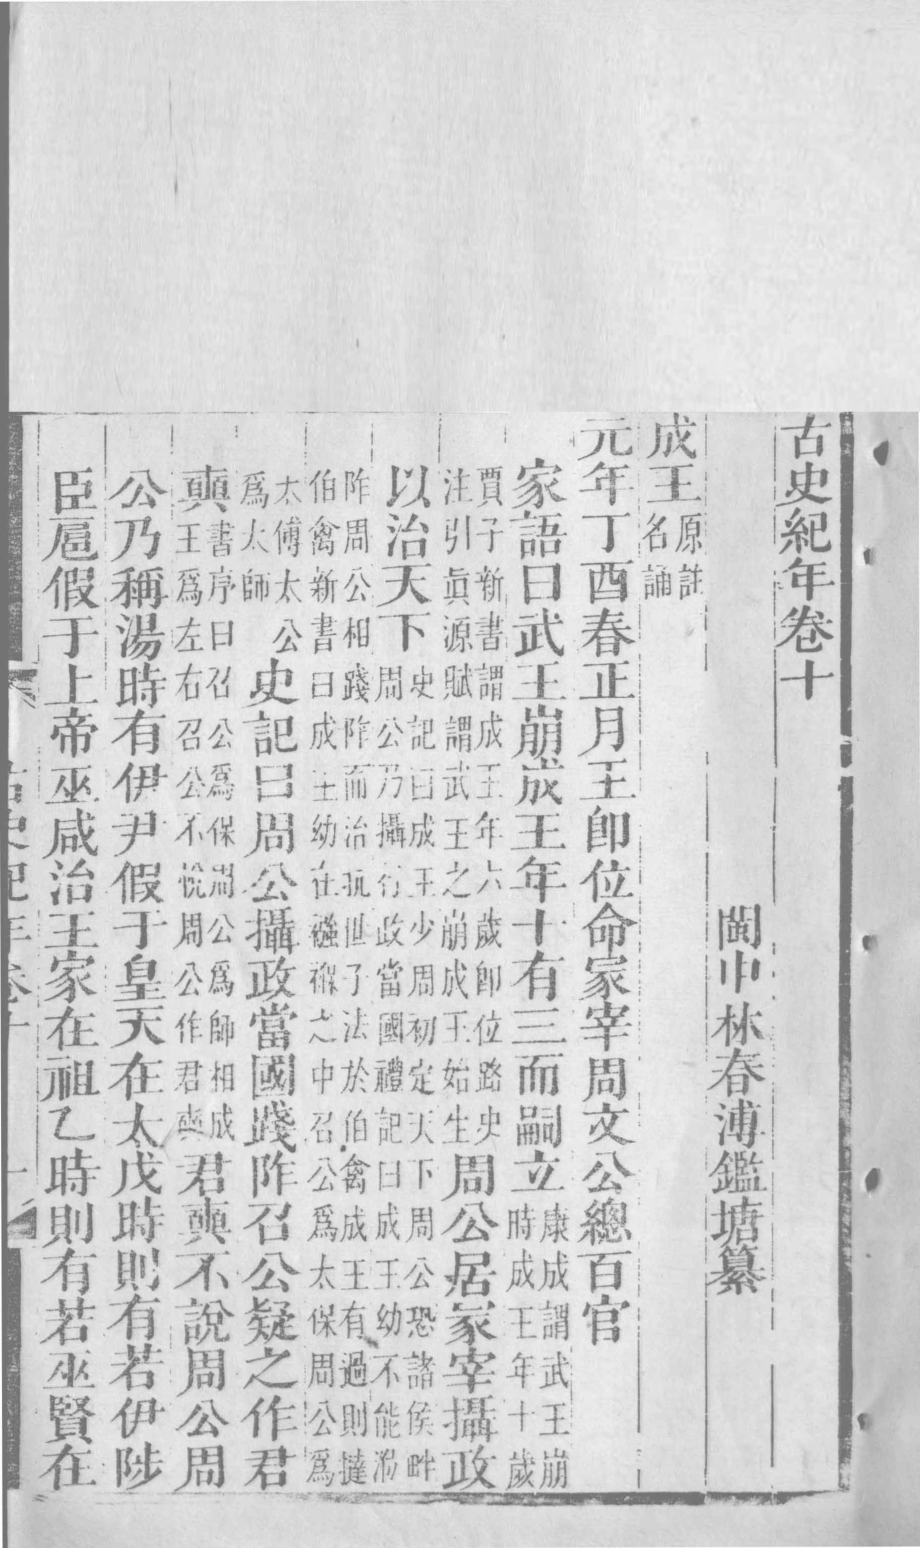 古史紀年卷十
閩中林春溥鑑塘纂
成王原註名誦
元年丁酉春正月王卽位命冢宰周文公總百官
家語曰武王崩成王年十有三而嗣立康成謂武王崩時成王年十歲
賈子新書謂成王年六歲卽位路史注引眞源賦謂武王之崩成王始生周公居冢宰攝政
以治天下史記曰成王少周初定天下周公恐諸侯畔周公乃攝行政當國禮記曰成王幼不能涖
阼周公相踐阼而治抗世子法於伯禽成王有過則撻伯禽新書曰成王幼在襁褓之中召公爲太保周公爲
太傅太公爲太師史記曰周公攝政當國踐阼召公疑之作君
奭書序曰召公爲保周公爲師相成王爲左右召公不悅周公作君奭君奭不說周公周
公乃稱湯時有伊尹假于皇天在太戊時則有若伊陟
臣扈假于上帝巫咸治王家在祖乙時則有若巫賢在
古史紀年卷十 一